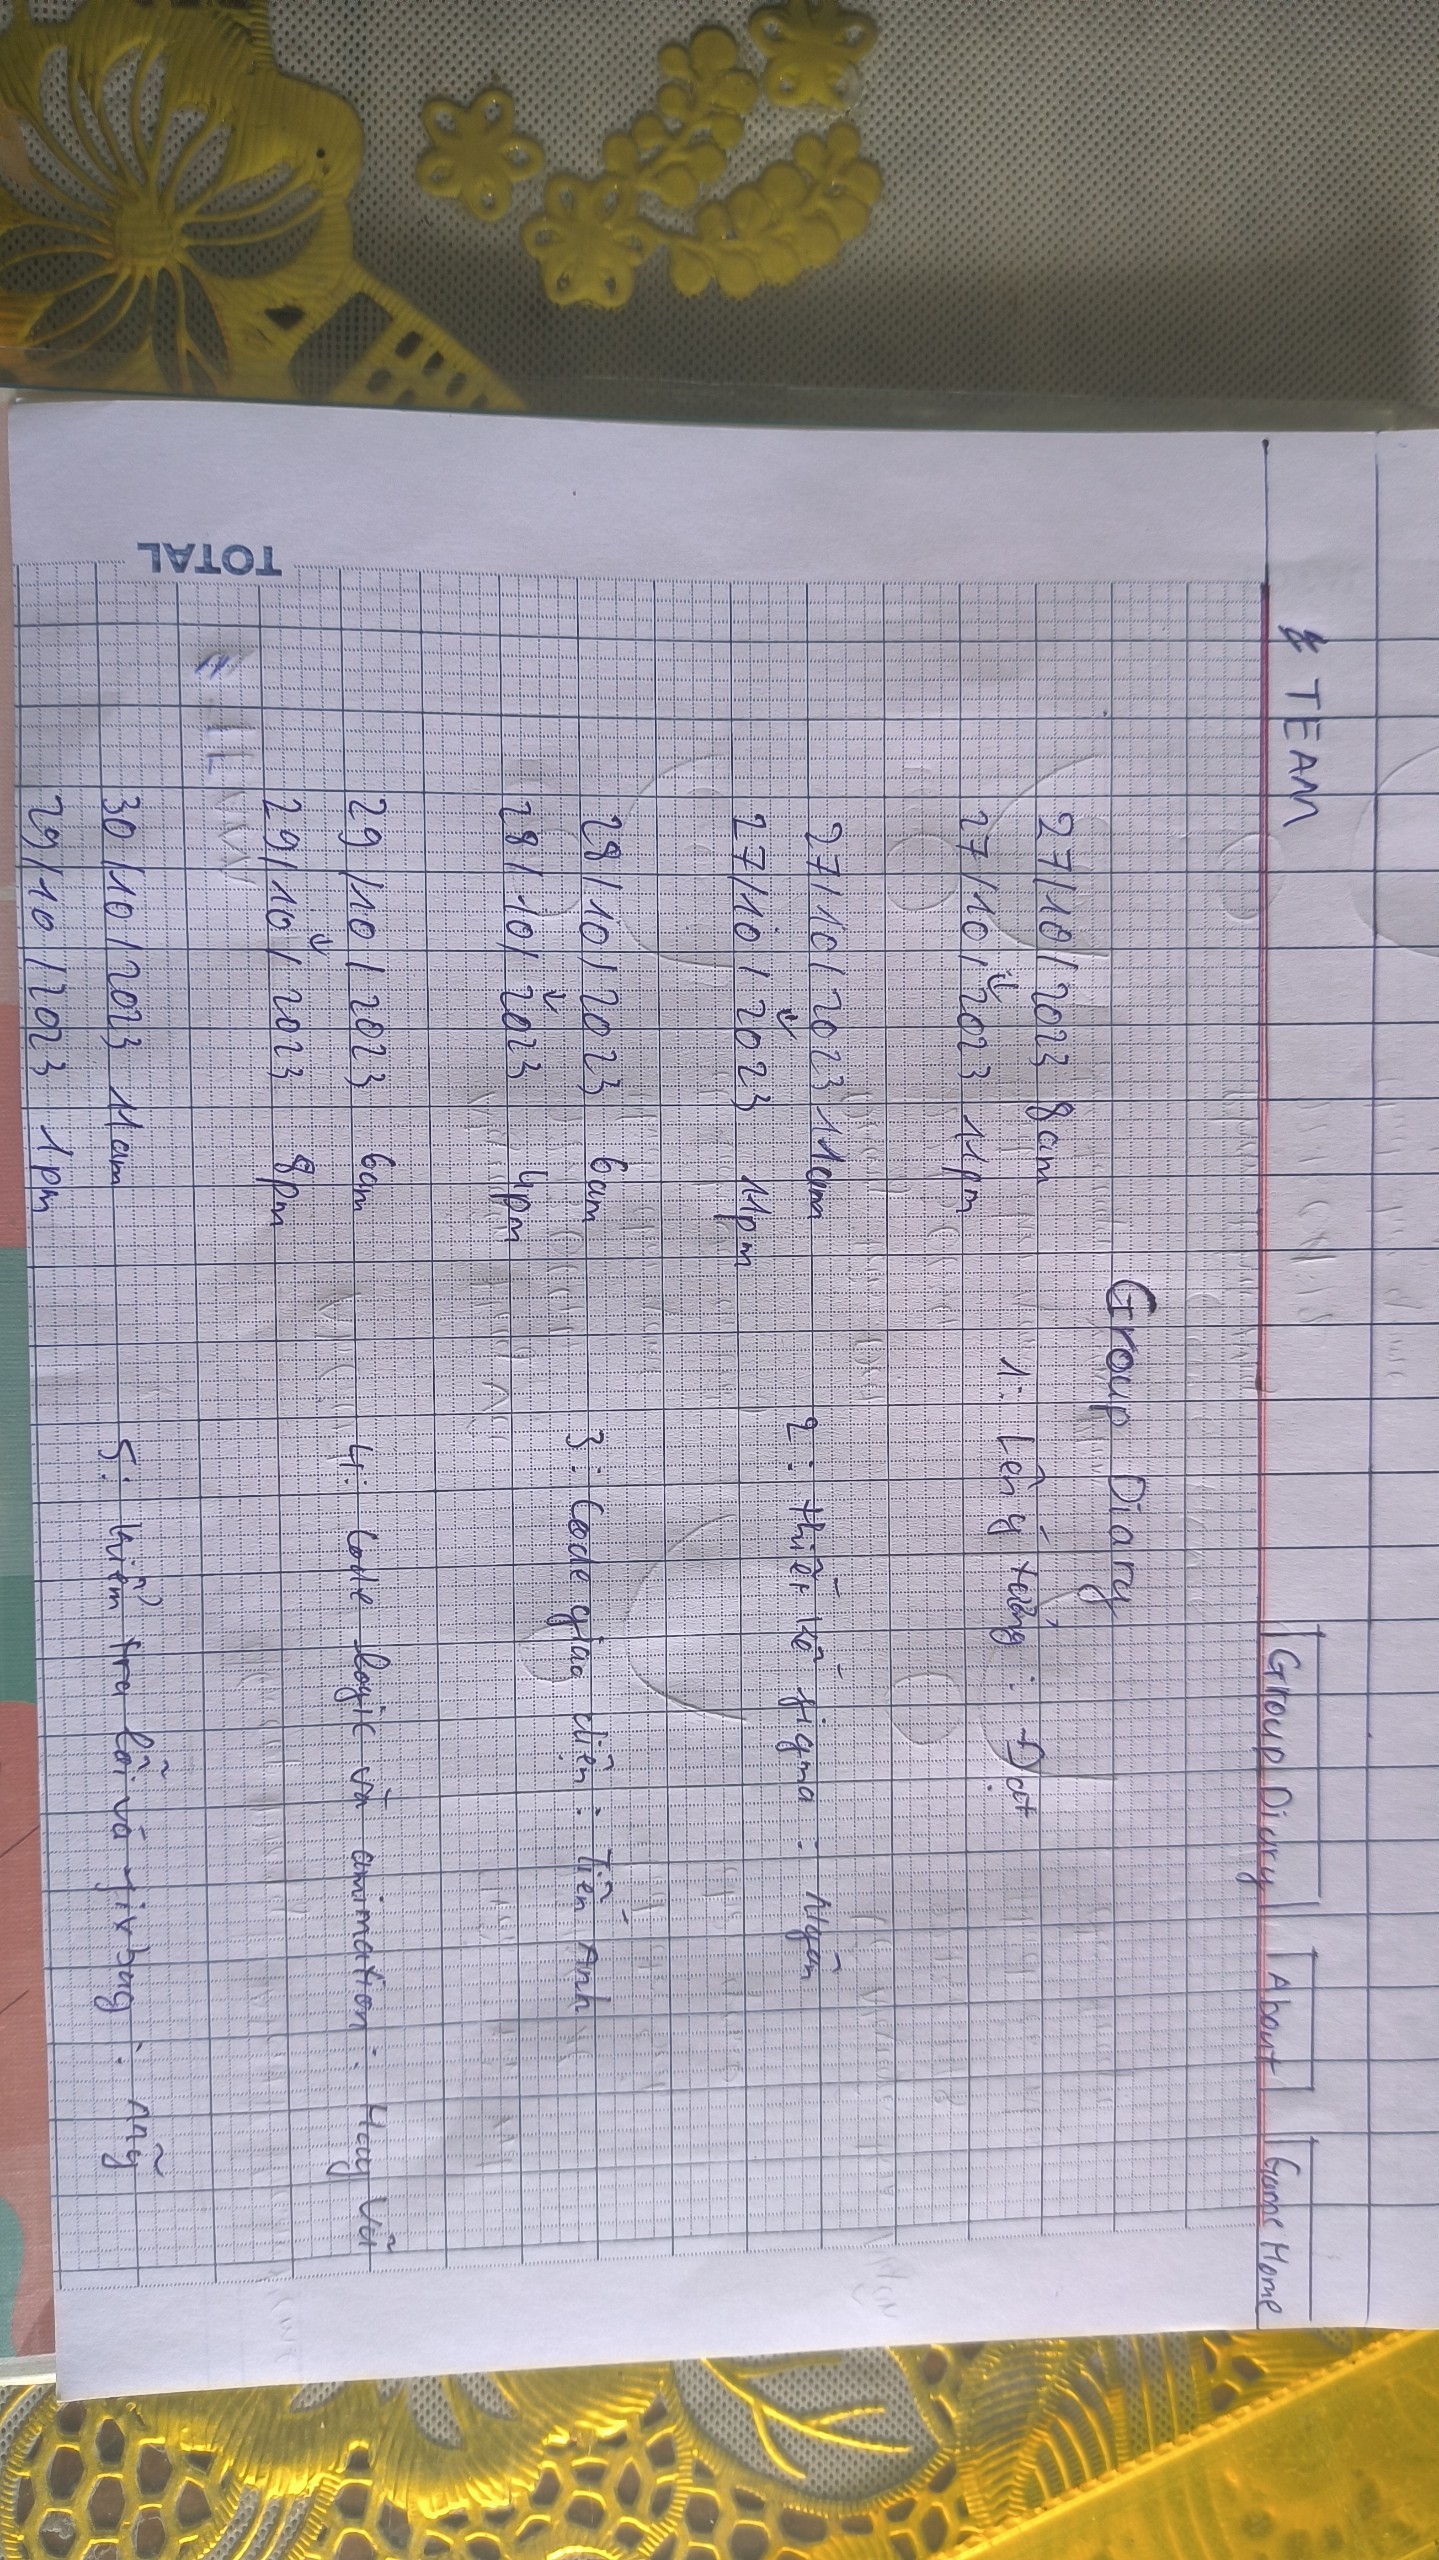 TEAM
Group Diary About Game Home
Group Diary
27/10/2023 8am
1: Lên ý tưởng : Đạt
27/10/2023 11pm
27/10/2023 11am
2 : thiết kế figma : Ngân
27/10/2023 11pm
28/10/2023 6am
3 : Code giao diện : Tiến Anh
28/10/2023 4pm
29/10/2023 6am
4: Code logic và animation : Huy Vũ
29/10/2023 8pm
30/10/2023 11am
5: kiểm tra lỗi và fix bug :
29/10/2023 1pm
TOTAL